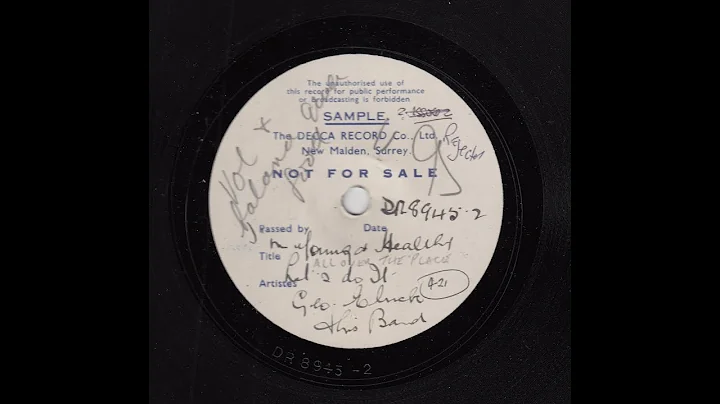 The unauthorised use of
this record for public performance
or Broadcasting is forbidden
SAMPLE.
The DECCA RECORD Co., Ltd.
New Malden, Surrey.
Reject
Vol &
balance quite
good
NOT FOR SALE
DR8945-2
Passed by Date
Young & Healthy
Title ALL OVER THE PLACE
Let's do It
Artistes
Geo. Elrick
A-21
& his Band
DR 8945-2